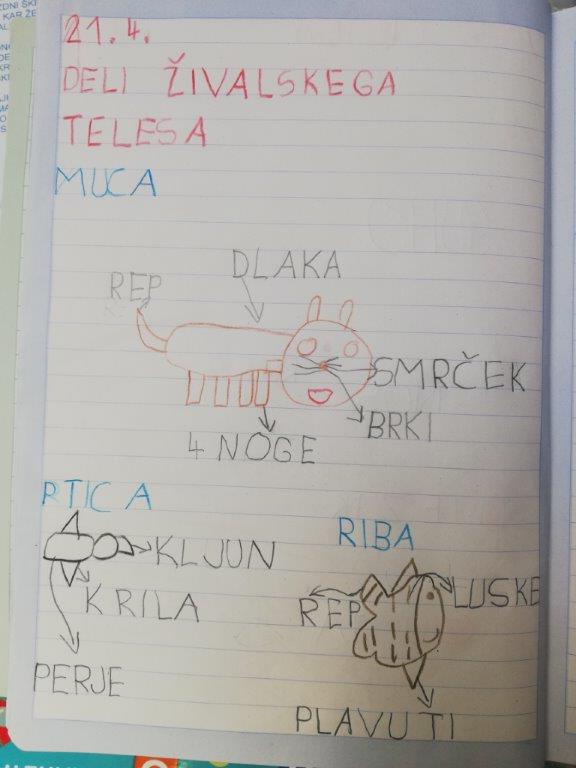 21.4.
DELI ŽIVALSKEGA
TELESA
MUCA
DLAKA
REP
SMRČEK
BRKI
4 NOGE
PTICA
RIBA
KLJUN
LUSKE
KRILA
REP
PERJE
PLAVUTI